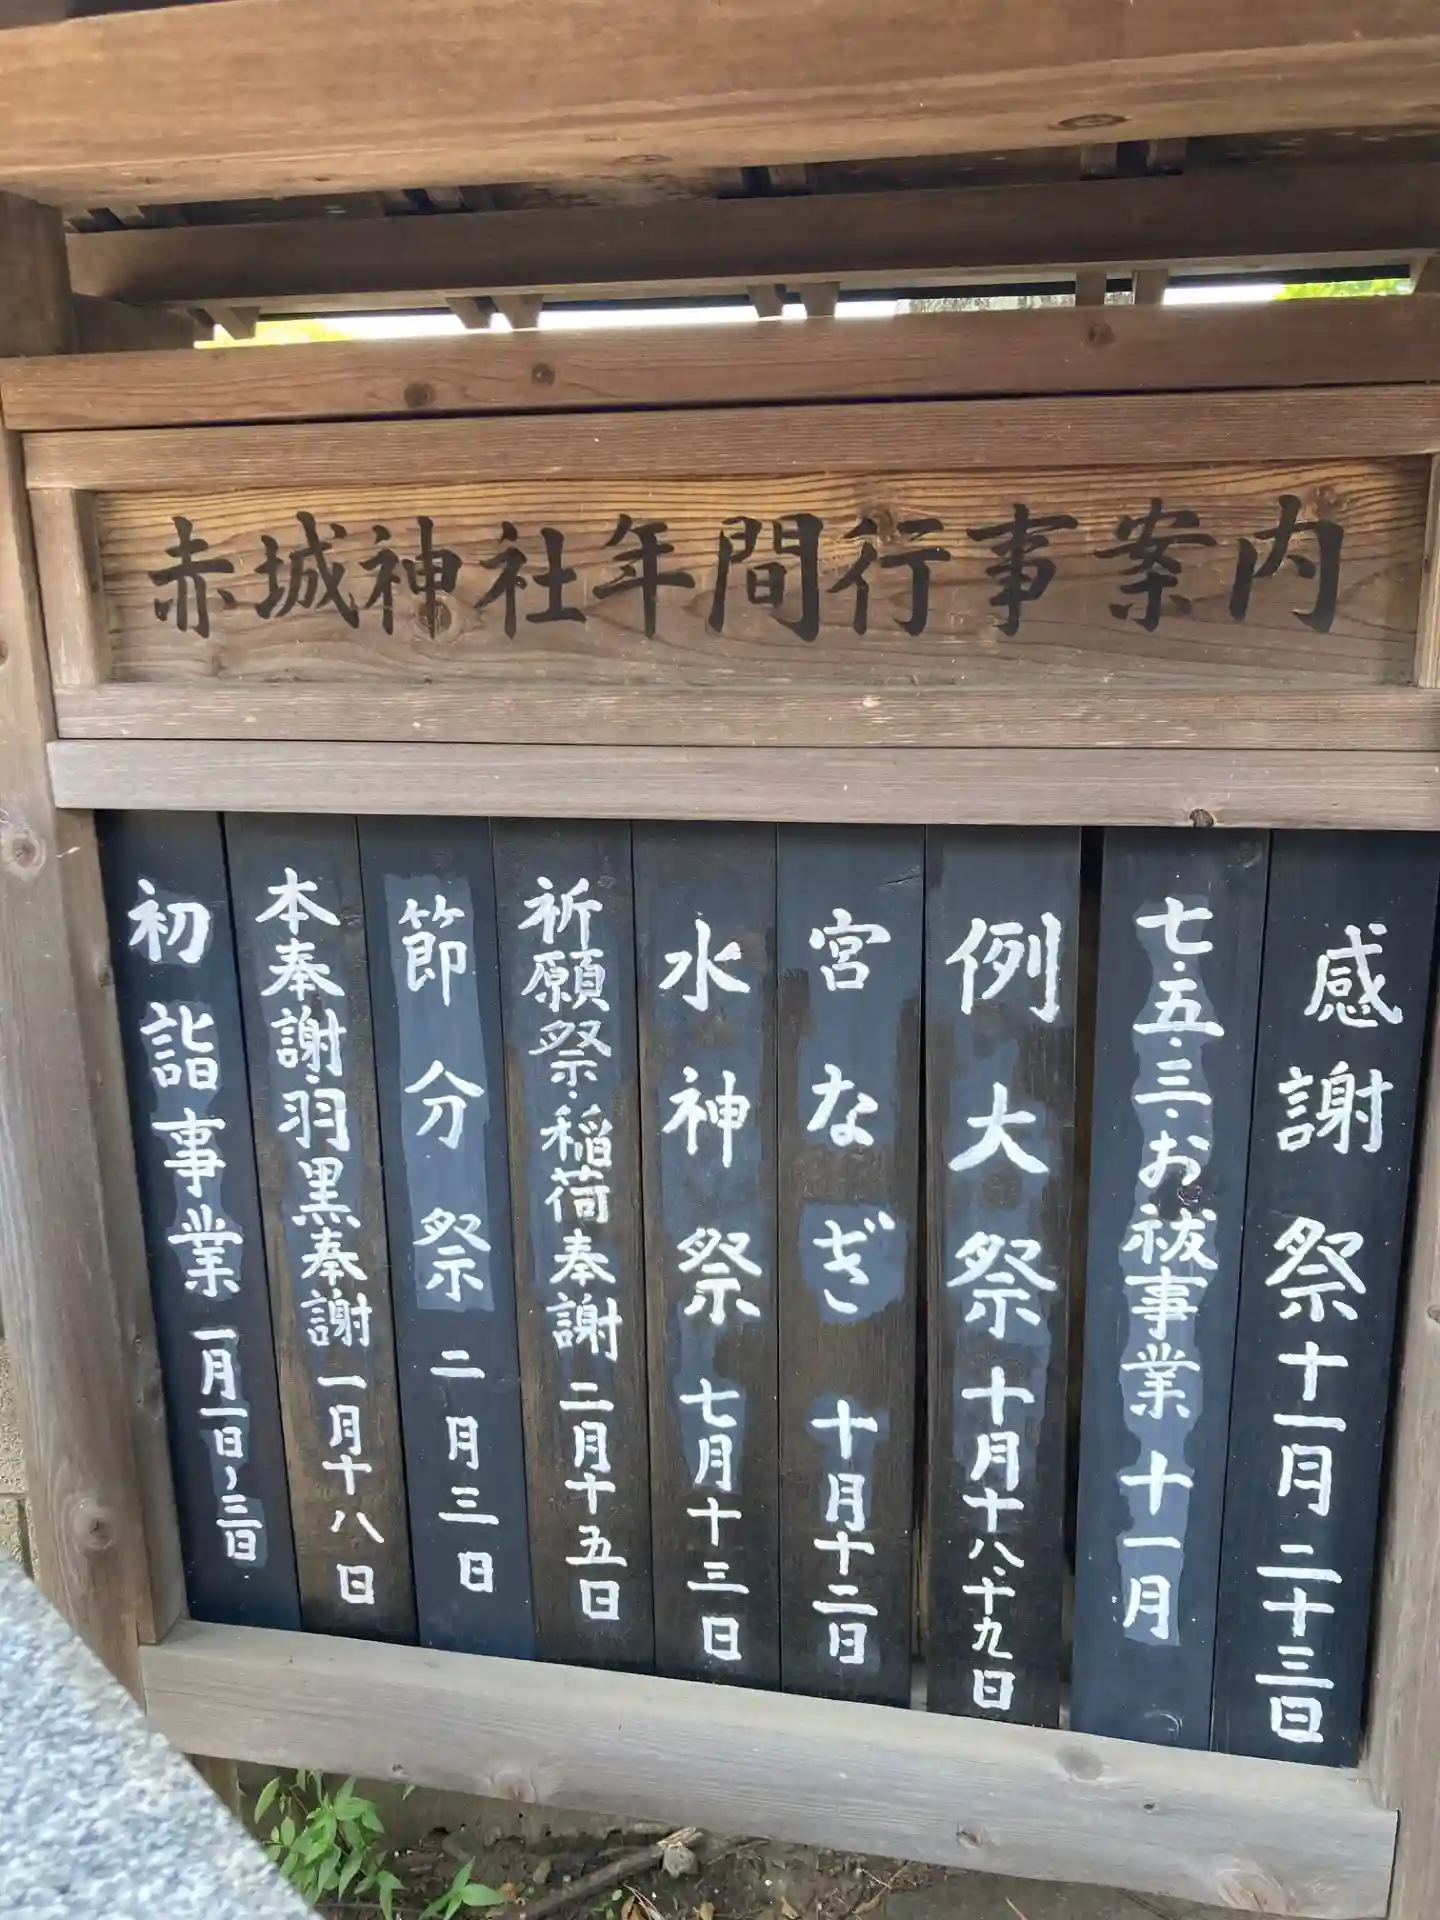 赤城神社年間行事案内
感謝祭十一月二十三日
七・五・三・お祓事業 十一月
例大祭 十月十八・十九日
宮なぎ 十月十二日
水神祭 七月十三日
祈願祭・稲荷奉謝 二月十五日
節分祭 二月三日
本奉謝・羽黒奉謝 一月十八日
初詣事業 一月一日〜三日